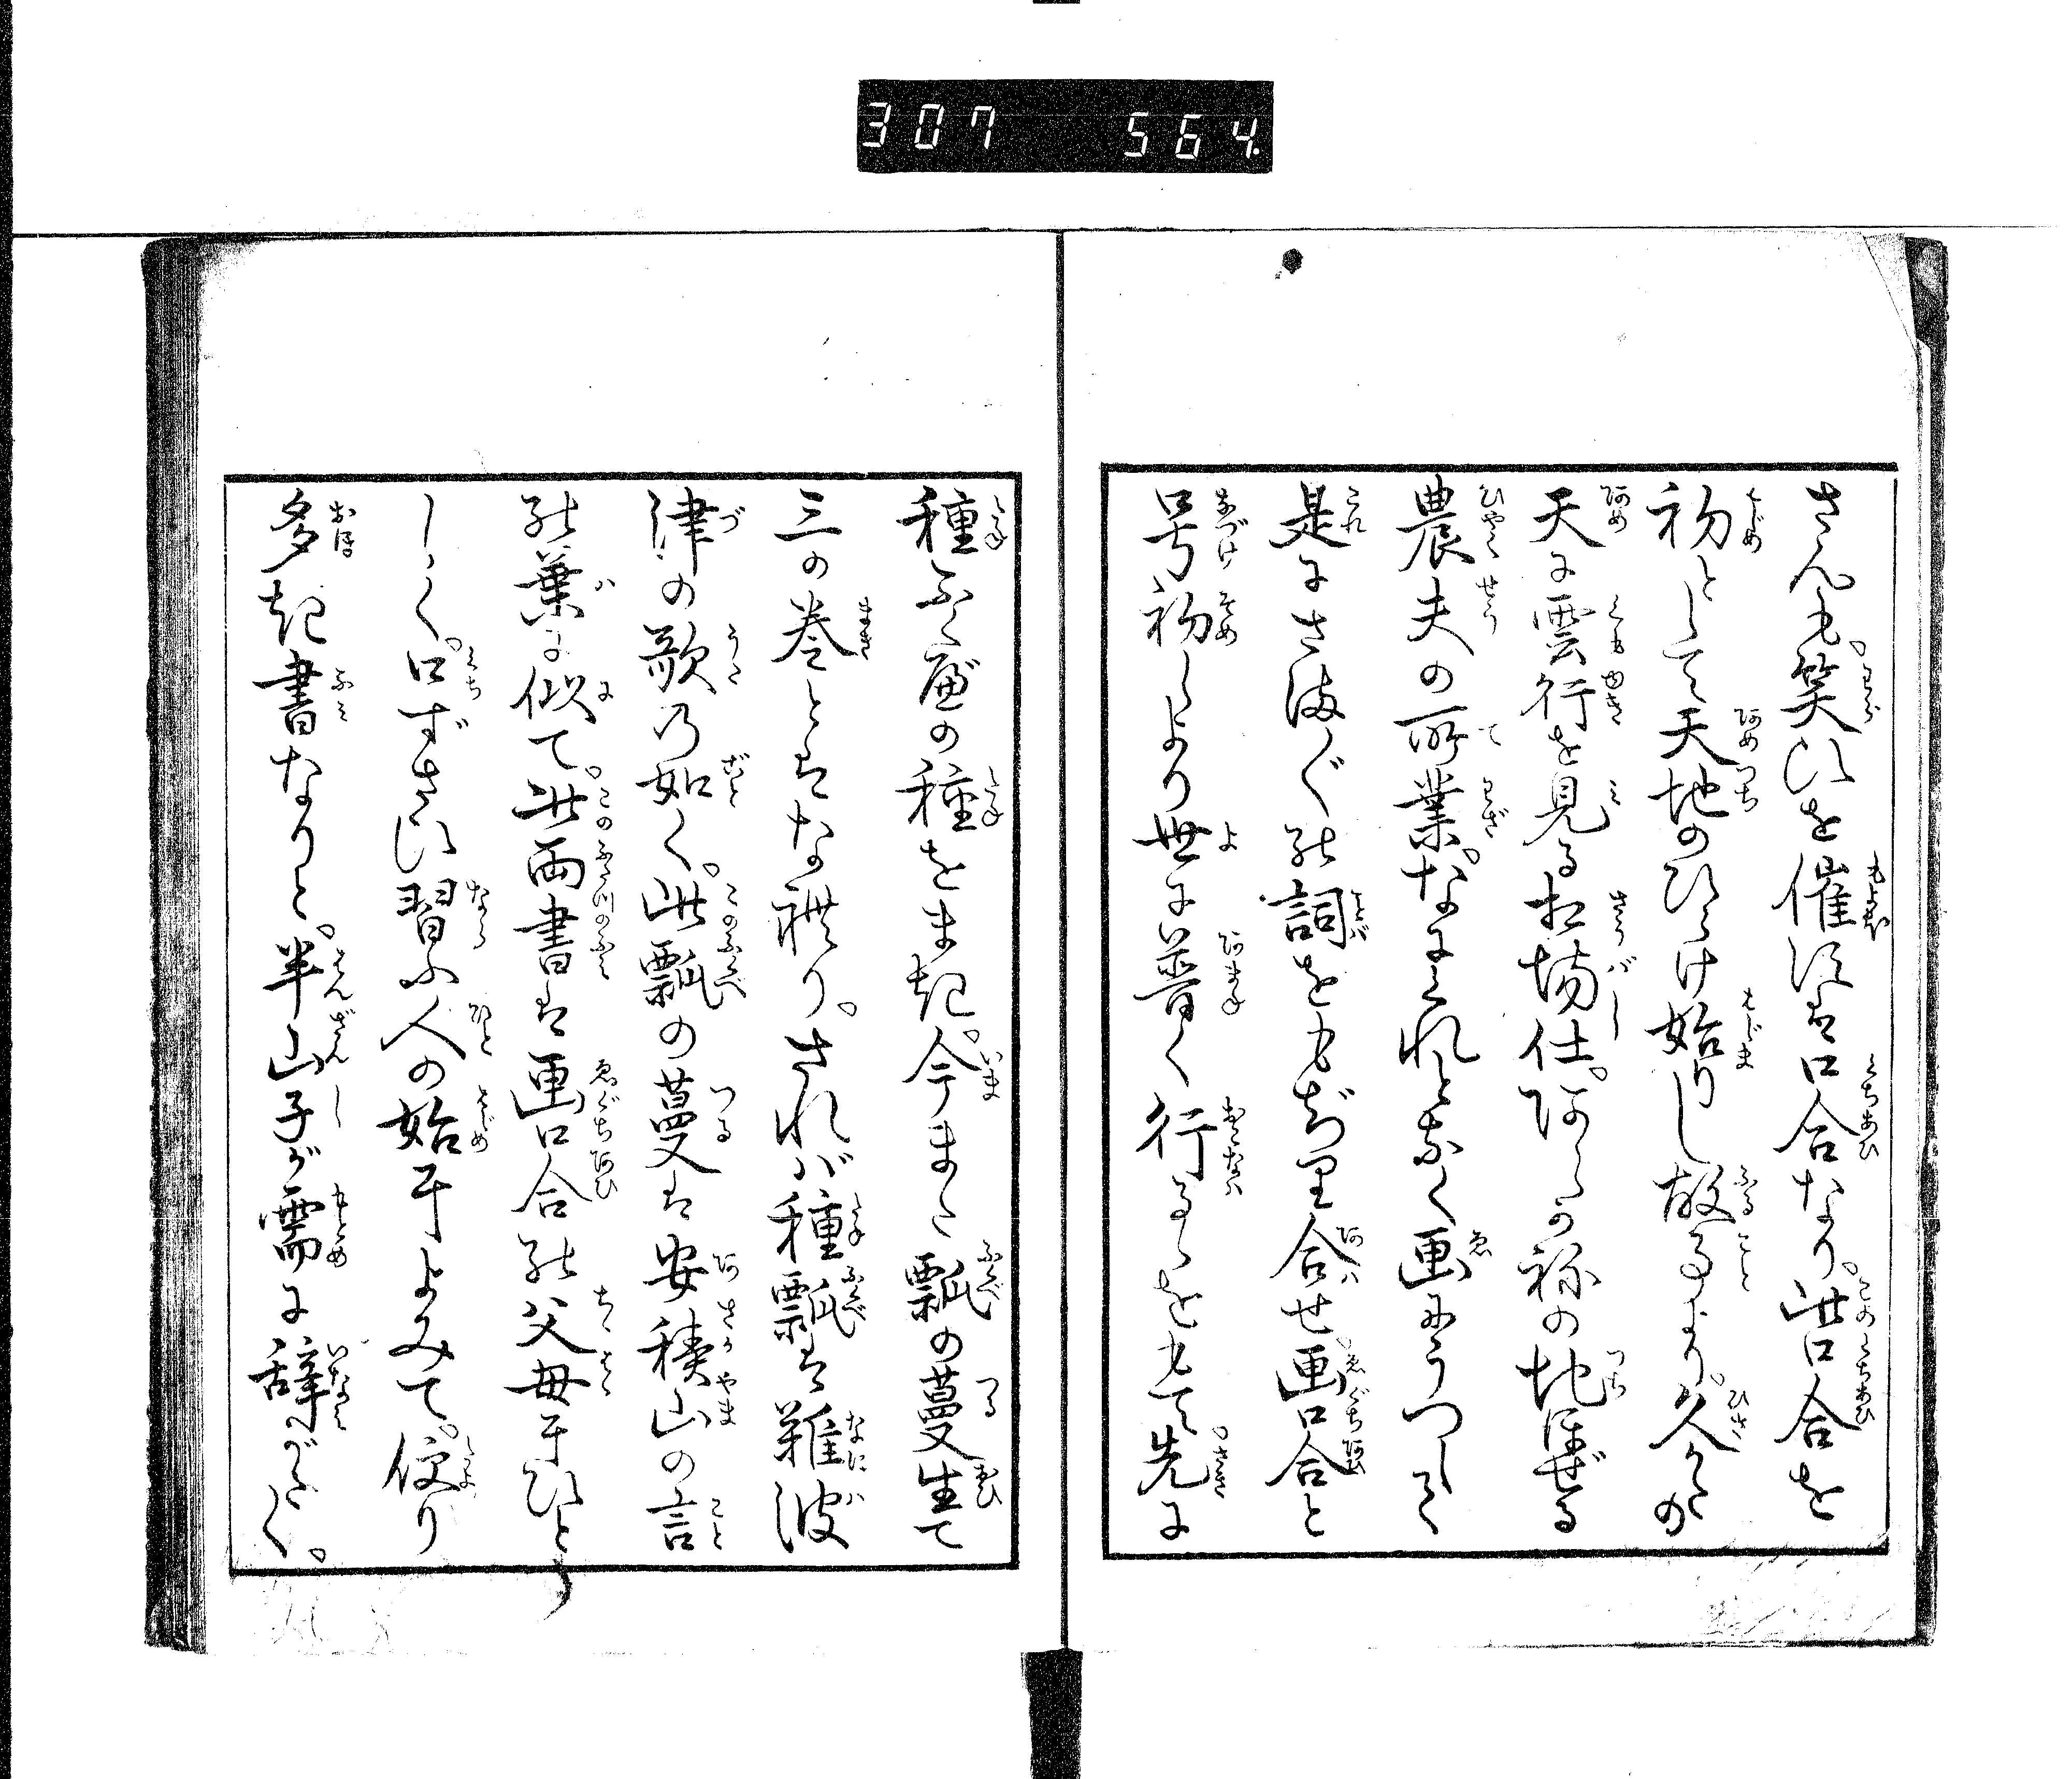 307 564
さんも。笑ひを催すは口合なり。此口合を
初として天地のひらけ始りし故事より。久かたの
天に雲行を見る相場仕。あらかねの地ほぜる
農夫の所業。なにくれとなく画にうつして
是にさまぐの詞をもぢり合せ。画口合と
号初しより世に普く行るゝをもて。先に
種ふくべの種をまき。今また瓢の蔓生て
三の巻とはなれり。されば種瓢は難波
津の歌の如く。此瓢の蔓は安積山の言
の葉に似て。此両書は画口合の父母にひと
しく。口ずさひ習ふ人の始によみて。便り
多き書なりと。半山子が需に辞がたく。